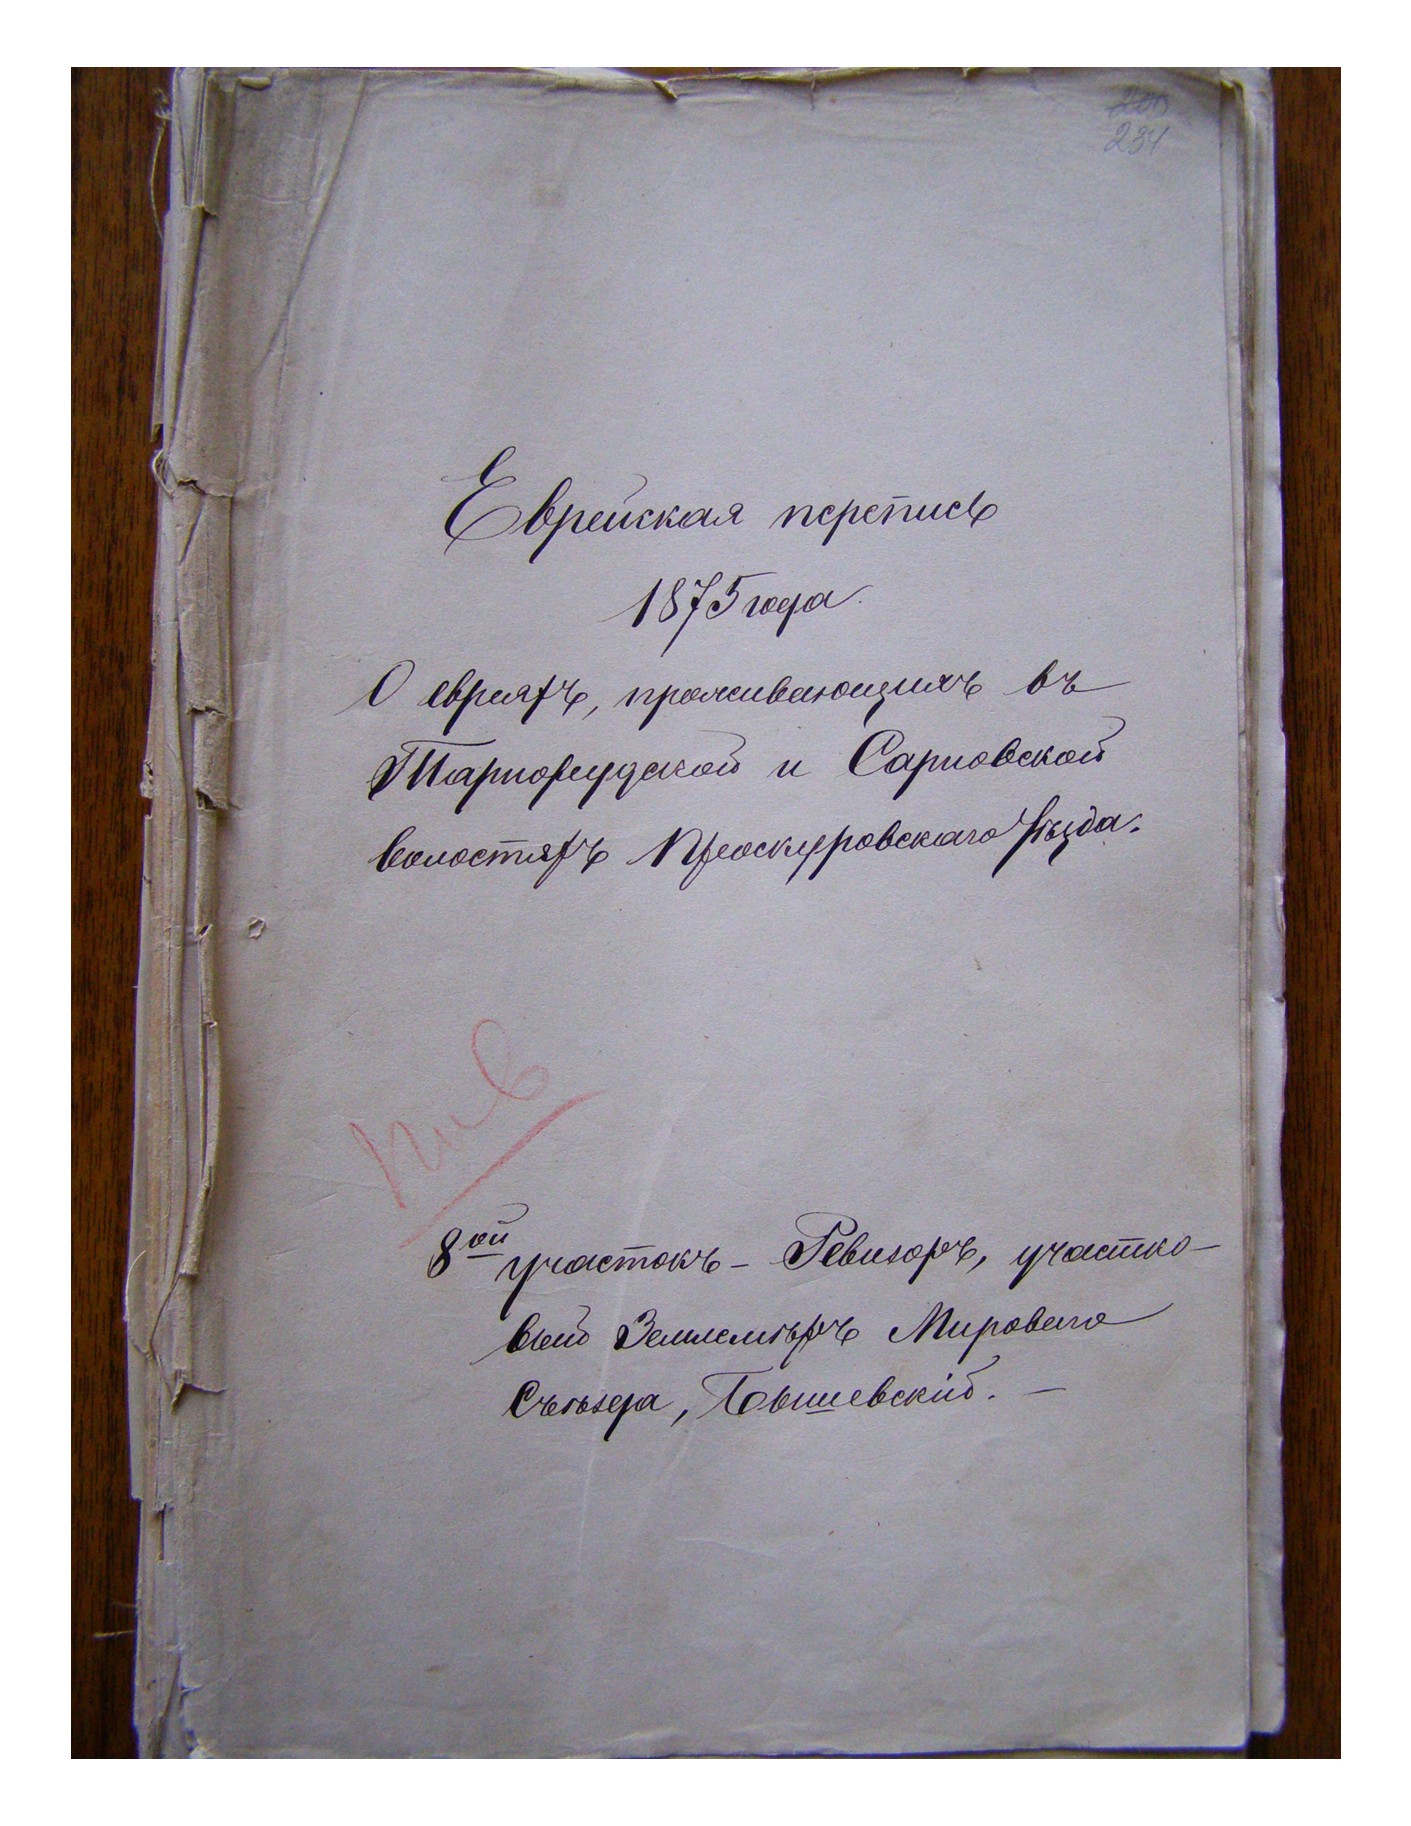 234
Еврейская перепись
1875 года
О евреяхъ, проживающихъ въ
Тарнорудской и Сарновской
волостяхъ Проскуровскаго уѣзда.
8ой участокъ – Ревизоръ, участко-
вый Землемѣръ Мироваго
Съѣзда, Бышевскій. –